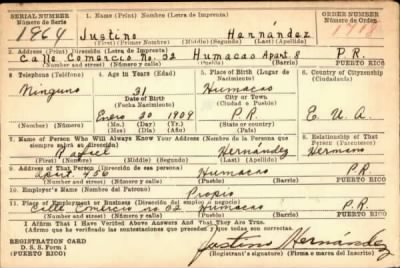 SERIAL NUMBER
Número de Serie
1. Name (Print) (Nombre) (Letra de Imprenta)
ORDER NUMBER
Número de Orden
1864 Justino Hernández
(First) (Primer Nombre) (Middle) (Segundo) (Last) (Apellido)
2. Address (Print) (Dirección) (Letra de Imprenta)
Calle Comercio No. 32 Humacao Apart. 8 P.R.
(Number and street) (Número y calle) (Pueblo) (Barrio) PUERTO RICO
3. Telephone (Teléfono)
Ninguno
4. Age in Years (Edad)
31
Date of Birth
Fecha Nacimiento
Enero 20 1909
(Mo.) (Day) (Yr.)
(Mes) (Día) (Año)
5. Place of Birth (Lugar de Nacimiento)
Humacao
City or Town
(Ciudad o Pueblo)
P.R.
(State or country)
(Estado o país)
6. Country of Citizenship
(Ciudadanía)
E.U.A.
7. Name of Person Who Will Always Know Your Address (Nombre de la Persona que siempre sabrá su dirección)
Rafael Hernández
(First) (Nombre) (Middle) (Segundo) (Last) (Apellido)
8. Relationship of That Person (Parentesco)
Hermano
9. Address of That Person (Dirección de esa persona)
Apart. 456 Humacao P.R.
(Number and street) (Número y calle) (Pueblo) (Barrio) PUERTO RICO
10. Employer's Name (Nombre del Patrono)
Propio
11. Place of Employment or Business (Dirección del empleo o negocio)
Calle Comercio no 32 Humacao P.R.
(Number and street) (Número y calle) (Pueblo) (Barrio) PUERTO RICO
I Affirm That I Have Verified Above Answers And That They Are True.
(Afirmo que he verificado las contestaciones que preceden y que todas son correctas.)
REGISTRATION CARD
D. S. S. Form 1
(Tarjeta de Inscripción)
Justino Hernández
(Registrant's signature) (Firma o marca del inscrito)